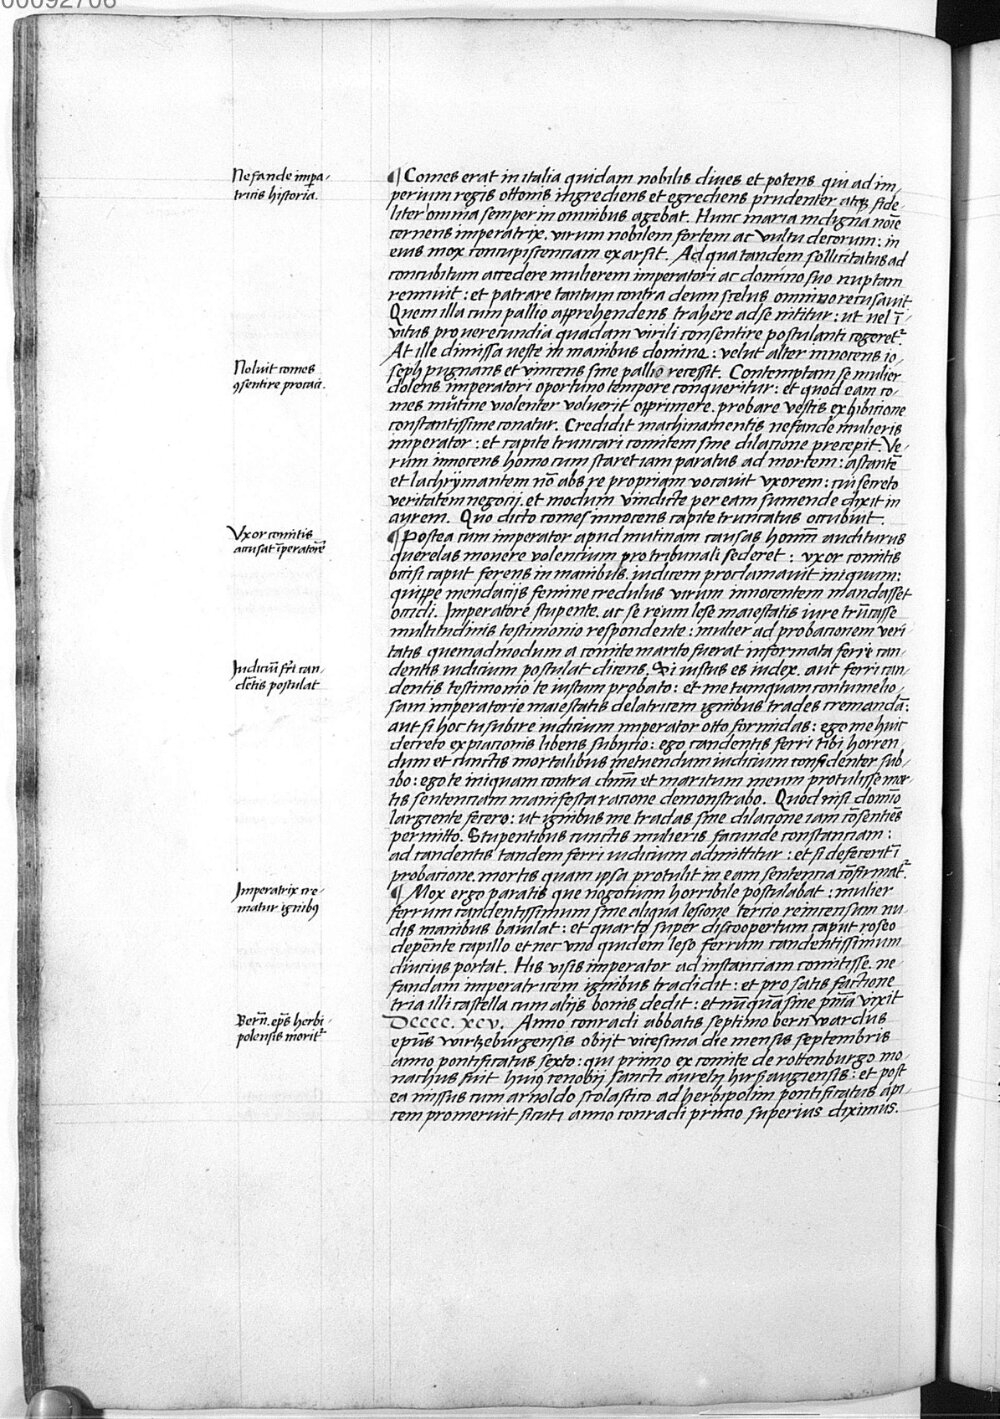 00092706
Nefande impa-
tricis historia.
¶ Comes erat in italia quidam nobilis diues et potens qui ad im-
perium regis ottonis ingrediens et egrediens prudenter atqꝫ fide-
liter omnia semper in omnibus agebat. Hunc maria indigna noīe
cernens imperatrix. virum nobilem fortem ac vultu decorum: in
eius mox concupiscenciam exarsit. A qua tandem sollicitatus ad
concubitum accedere mulierem imperatori ac domino suo nuptam
rennuit: et patrare tantum contra deum scelus omnino recusauit
Quem illa cum pallio apprehendens trahere ad se nititur: ut vel ī-
vitus pro verecundia quadam virili consentire postulanti cogeretᷣ.
At ille dimissa veste in manibus domine: velut alter innocens io-
Noluit comes
ꝯsentire procaci.
seph pugnans et vincens sine pallio recessit. Contemptam se mulier
dolens imperatori oportuno tempore conqueritur: et quod eam co-
mes mutine violenter voluerit opprimere. probare vestis exhibicione
constantissime conatur. Credidit machinamentis nefande mulieris
imperator: et capite truncari comitem sine dilacione precepit. Ve-
rum innocens homo cum staret iam paratus ad mortem: astantē
et lachrymantem nō abs re propriam vocauit vxorem: cui secreto
veritatem negocij. et modum vindicte per eam sumende dixit in
aurem. Quo dicto comes innocens capite truncatus occubuit.
Vxor comitis
accusat īperatorē
¶ Postea cum imperator apud mutinam causas hominū auditurus
querelas mouere volencium pro tribunali sederet: vxor comitis
occisi caput ferens in manibus. iudicem proclamauit iniquum:
quippe mendacijs femine credulus virum innocentem mandasset
occidi. Imperatore stupente. ac se reum lese maiestatis iure trūcasse
multitudinis testimonio respondente: mulier ad probacionem veri-
tatis quemadmodum a comite marito fuerat informata ferri can-
Judiciū fri can-
dētis postulat
dentis iudicium postulat dicens. Si iustus es iudex. aut ferri can-
dentis testimonio te iustum probato: et me tamquam contumelio-
sam imperatorie maiestatis delatricem ignibus trades cremandā:
aut si hoc tu subire iudicium imperator otto formidas: ego me huic
decreto expiacionis libens subijcio: ego candentis ferri tibi horren-
dum et cunctis mortalibus metuendum iudicium confidenter sub-
ibo: ego te iniquam contra dnm et maritum meum protulisse mor-
tis sentenciam manifesta racione demonstrabo. Quod nisi domīo
largiente fecero: ut ignibus me tradas sine dilacione iam cōsentiēs
permitto. Stupentibus cunctis mulieris facunde constanciam:
ad candentis tandem ferri iudicium admittitur: et si defecerit ī
probacione. mortis quam ipsa protulit in eam sentencia cōfirmatᷣ.
Imperatrix cre-
matur ignibꝰ
¶ Mox ergo paratis que negotium horribile postulabat: mulier
ferrum candentissimum sine aliqua lesione tercio reincensum nu-
dis manibus baiulat: et quarto super discoopertum caput roseo
depēnte capillo et nec vno quidem leso ferrum candentissimum
diucius portat. His visis imperator ad instanciam comitisse. ne-
fandam imperatricem ignibus tradidit: et pro satisfactione
tria illi castella cum alijs bonis dedit: et nūquā sine pnīa vixit
Bern. epūs herbi-
polensis moritᷣ
Dcccc. xcv. Anno conradi abbatis septimo bernwardus
epūs wirtzeburgensis obijt vicesima die mensis septembris
anno pontificatus sexto: qui primo ex comite de rottenburgo mo-
nachus fuit huiꝰ cenobij sancti aurelij hirsaugiensis: et post-
ea missus cum arnoldo scolastico ad herbipolim pontificatus api-
cem promeruit sicuti anno conradi primo superius diximus.